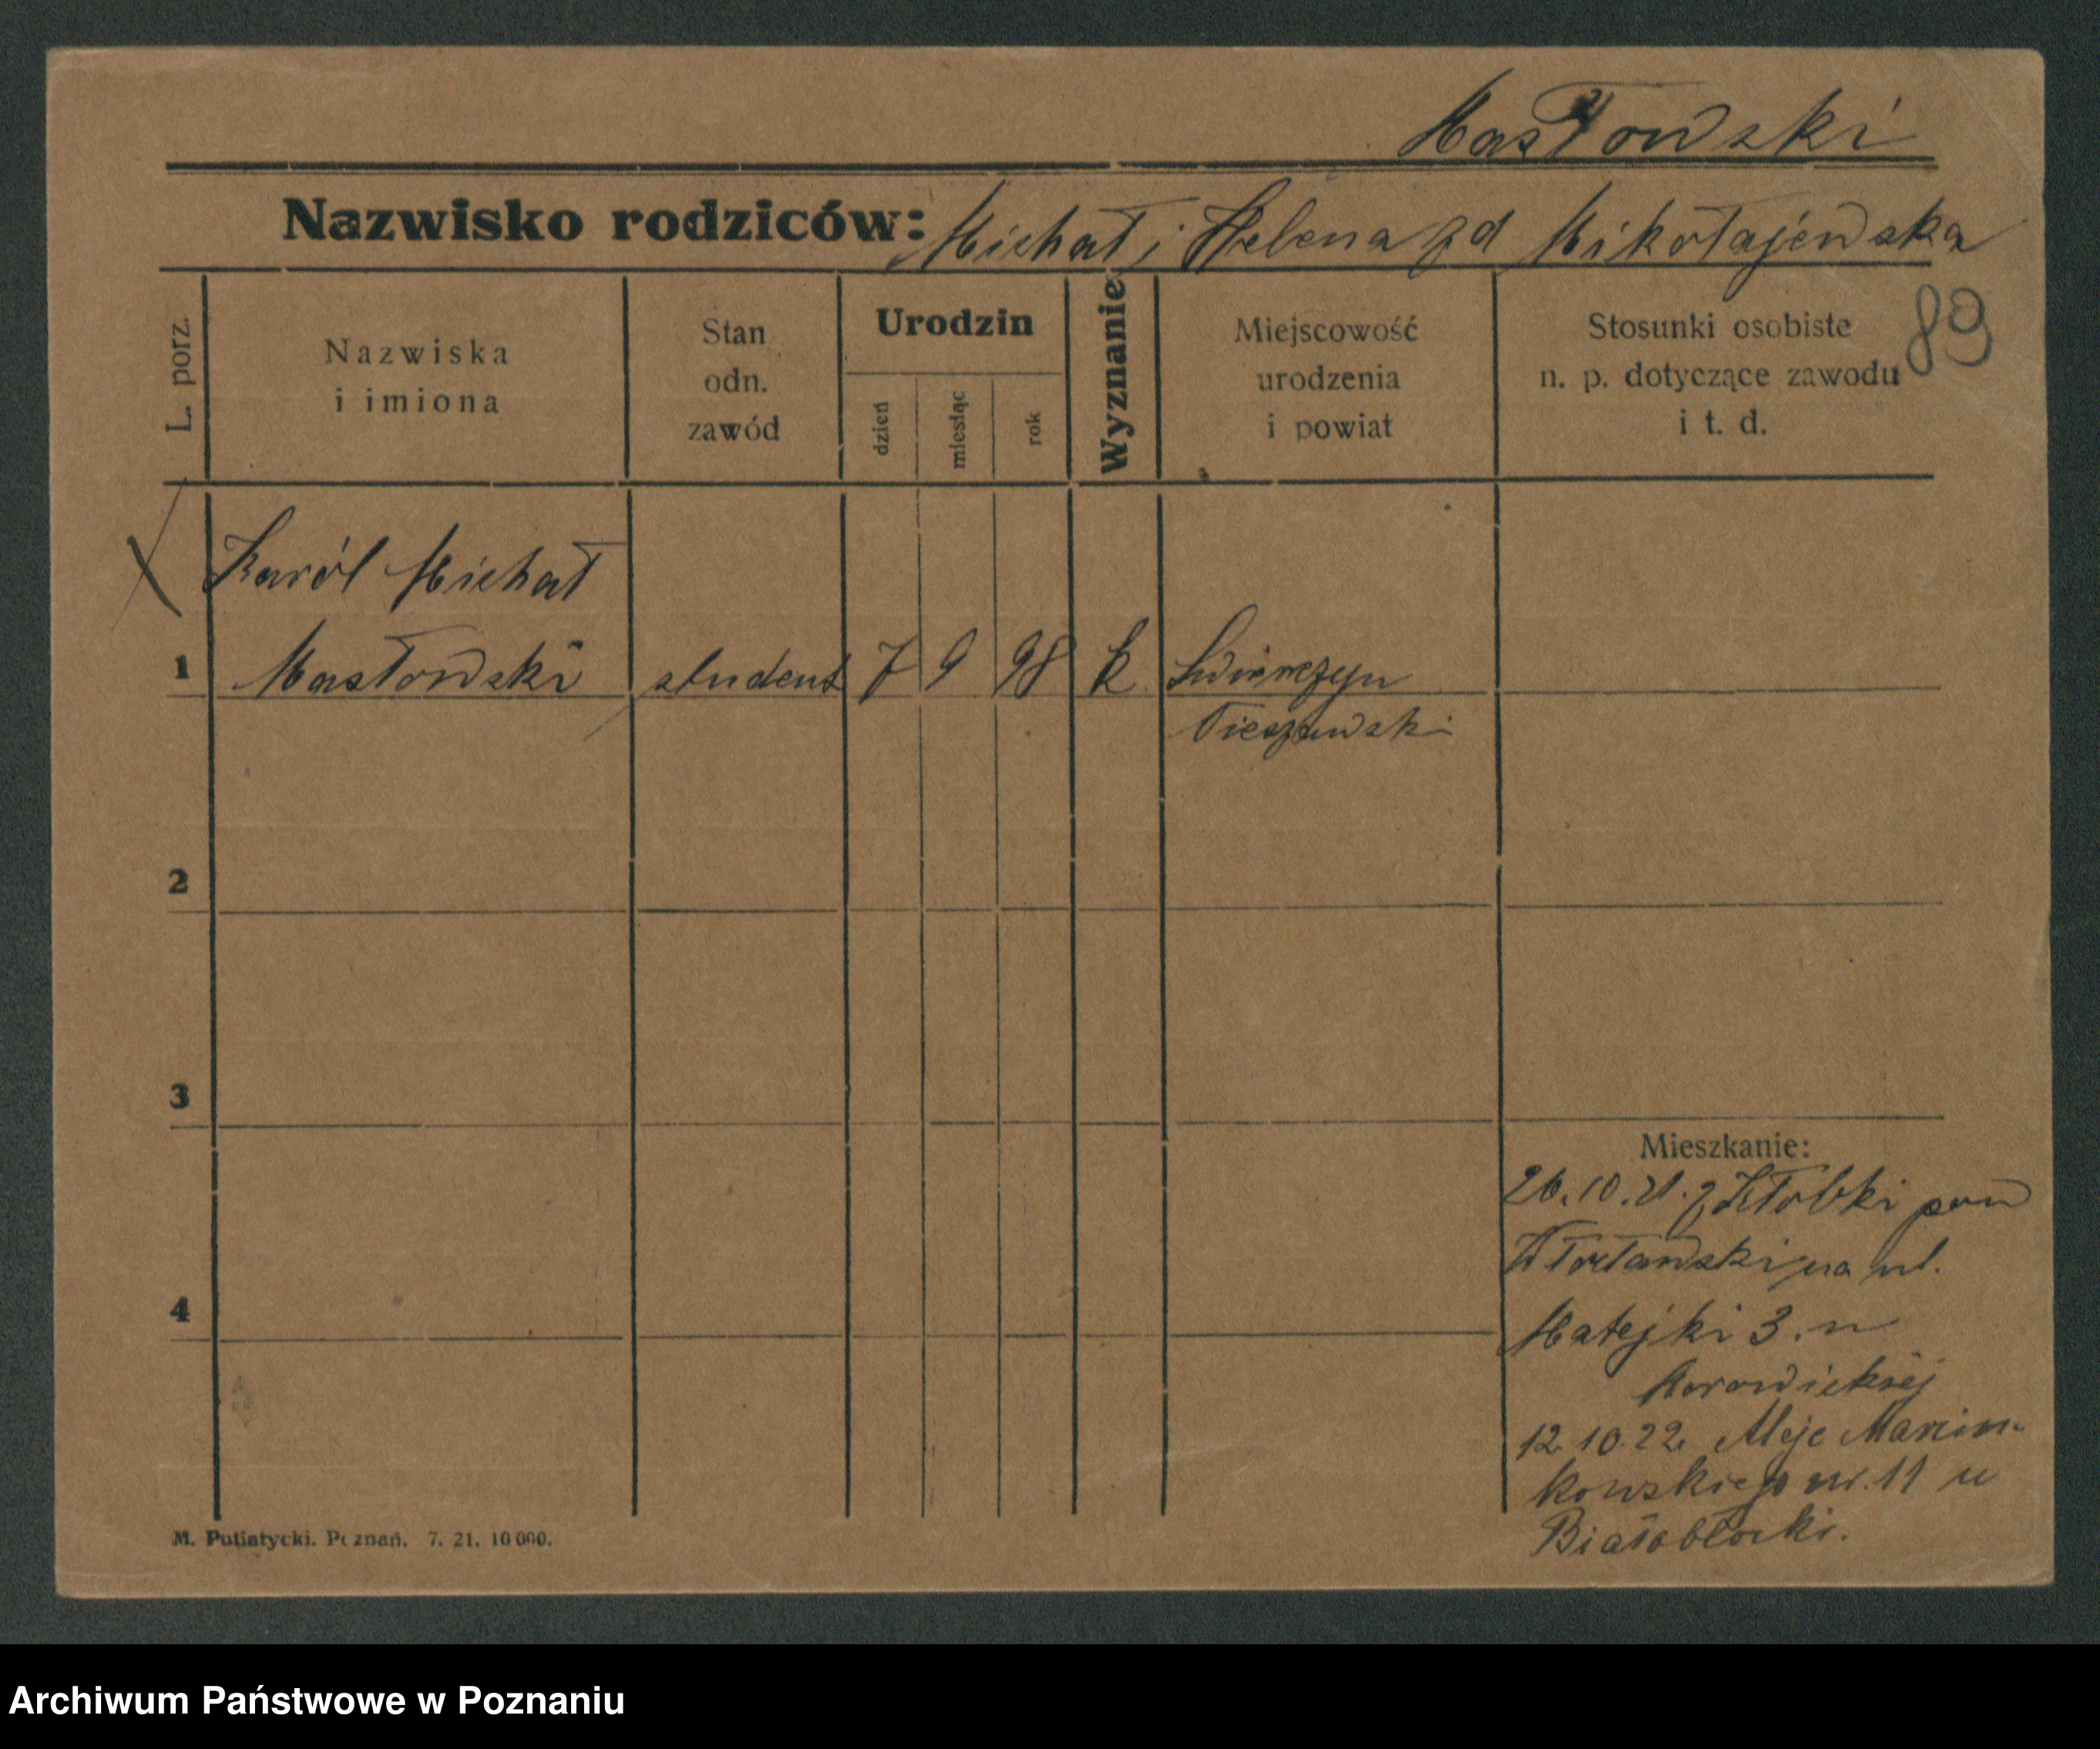 Masłowski
Nazwisko rodziców: Michał i Helena zd Mikołajewska
89
L. porz.
Nazwiska
i imiona
Stan
odn.
zawód
Urodzin
dzień
miesiąc
rok
Wyznanie
Miejscowość
urodzenia
i powiat
Stosunki osobiste
n. p. dotyczące zawodu
i t. d.
Karól Michał
1 Masłowski student 7 9 98 k
Nieszawski
2
3
4
Mieszkanie:
26.10.21. z Kłobki pow
na ul.
Matejki 3. u
12.10.22. Aleje Marcin-
kowskiego nr. 11 u
Białobłocki.
M. Putiatycki. Poznań. 7. 21. 10 000.
Archiwum Państwowe w Poznaniu